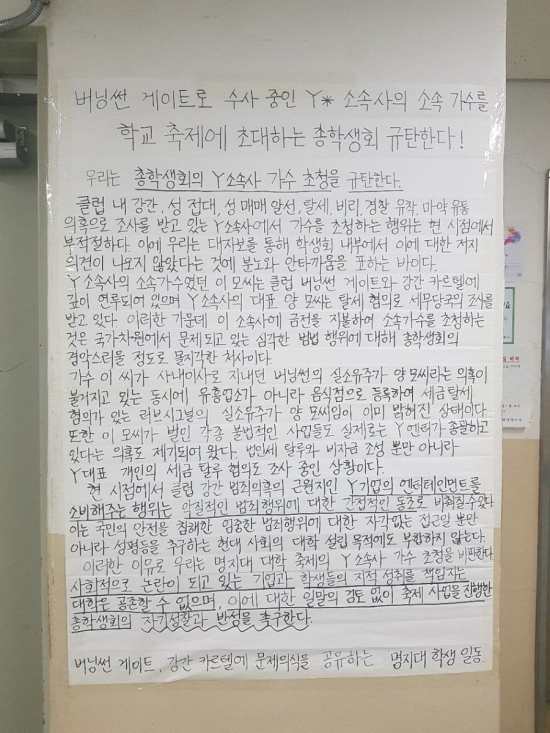 버닝썬 게이트로 수사 중인 Y* 소속사의 소속 가수를
학교 축제에 초대하는 총학생회 규탄한다!
우리는 총학생회의 Y소속사 가수 초청을 규탄한다.
클럽 내 강간, 성 접대, 성 매매 알선, 탈세, 비리, 경찰 유착, 마약 유통
의혹으로 조사를 받고 있는 Y소속사에서 가수를 초청하는 행위는 현 시점에서
부적절하다. 이에 우리는 대자보를 통해 학생회 내부에서 이에 대한 저지
의견이 나오지 않았다는 것에 분노와 안타까움을 표하는 바이다.
Y소속사의 소속가수였던 이 모씨는 클럽 버닝썬 게이트와 강간 카르텔에
깊이 연루되어 있으며 Y소속사의 대표 양 모씨는 탈세 혐의로 세무당국의 조사를
받고 있다. 이러한 가운데 이 소속사에 금전을 지불하여 소속가수를 초청하는
것은 국가차원에서 문제되고 있는 심각한 범법 행위에 대해 총학생회의
경악스러울 정도로 몰지각한 처사이다.
가수 이 씨가 사내이사로 지내던 버닝썬의 실소유주가 양 모씨라는 의혹이
불거지고 있는 동시에 유흥업소가 아니라 음식점으로 등록하여 세금탈세
혐의가 있는 러브시그널의 실소유주가 양 모씨임이 이미 밝혀진 상태이다.
또한 이 모씨가 벌인 각종 불법적인 사업들도 실제로는 Y엔터가 총괄하고
있다는 의혹도 제기되어 왔다. 법인세 탈루와 비자금 조성 뿐만 아니라
Y대표 개인의 세금 탈루 혐의도 조사 중인 상황이다.
현 시점에서 클럽 강간 범죄의혹의 근원지인 Y기업의 엔터테인먼트를
소비해주는 행위는 악질적인 범죄행위에 대한 간접적인 동조로 비춰질수있다
이는 국민의 안전을 침해한 엄중한 범죄행위에 대한 자각없는 접근일 뿐만
아니라 성평등을 추구하는 현대 사회의 대학 설립 목적에도 부합하지 않는다.
이러한 이유로 우리는 명지대 대학 축제의 Y소속사 가수 초청을 비판한다
사회적으로 논란이 되고 있는 기업과 학생들의 지적 성취를 책임지는
대학은 공존할 수 없으며, 이에 대한 일말의 검토 없이 축제 사업을 진행한
총학생회의 자기성찰과 반성을 촉구한다.
버닝썬 게이트, 강간 카르텔에 문제의식을 공유하는 명지대 학생 일동.